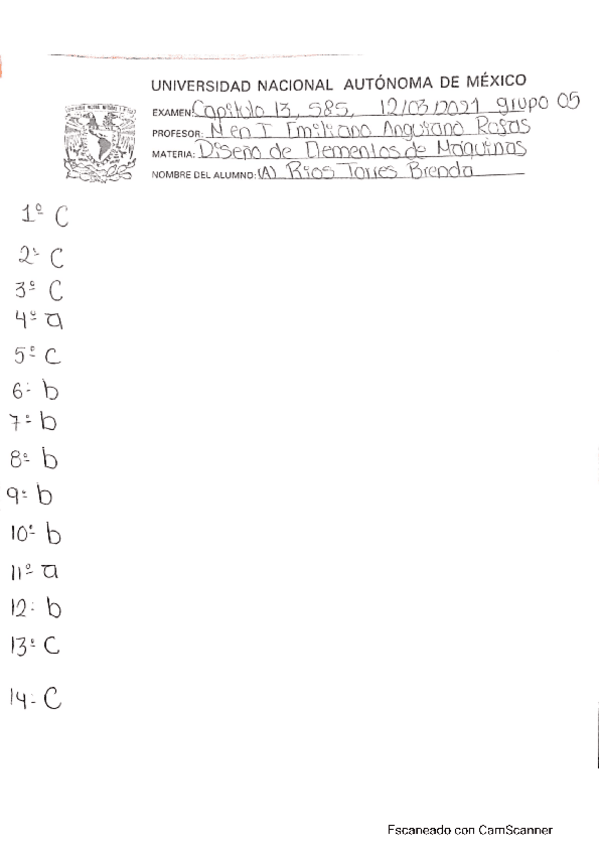 UNIVERSIDAD NACIONAL AUTÓNOMA DE MÉXICO
EXAMEN: Capitulo 13, 585, 12/03/2021 grupo 05
PROFESOR: M en I Emiliano Anguiano Rosas
MATERIA: Diseno de Elementos de Maquinas
NOMBRE DEL ALUMNO: (A) Rios Torres Brenda
1º C
2º C
3º C
4º a
5º C
6º b
7º b
8º b
9º b
10º b
11º a
12º b
13º C
14º C
Escaneado con CamScanner